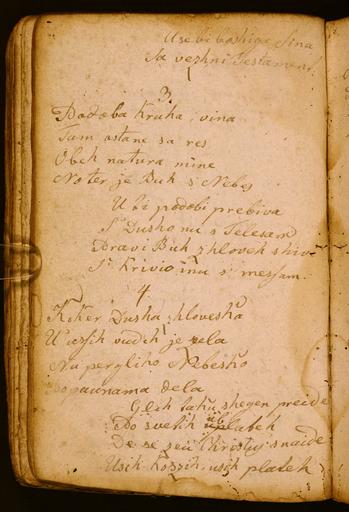 Use bi boshiga Sina
Sa vezhni Testament.
3.
Podoba kruha, vina
Tam ostane sa res
Obeh natura mine
Noter je Buh s Nebes
U bi podobi prebiva
S' Dusho nu s Telesam
Pravi Buh zhlovek shiv
S' krivio inu s' messam.
4
Koker Dusha zhloveshka
U usih udih je zela
Nu pergliho Nebeshko
dopaunama dela
Glih taku shegen preide
Do svetih ublateh
De se seu Christus snaide
Usih koszih, usih plateh